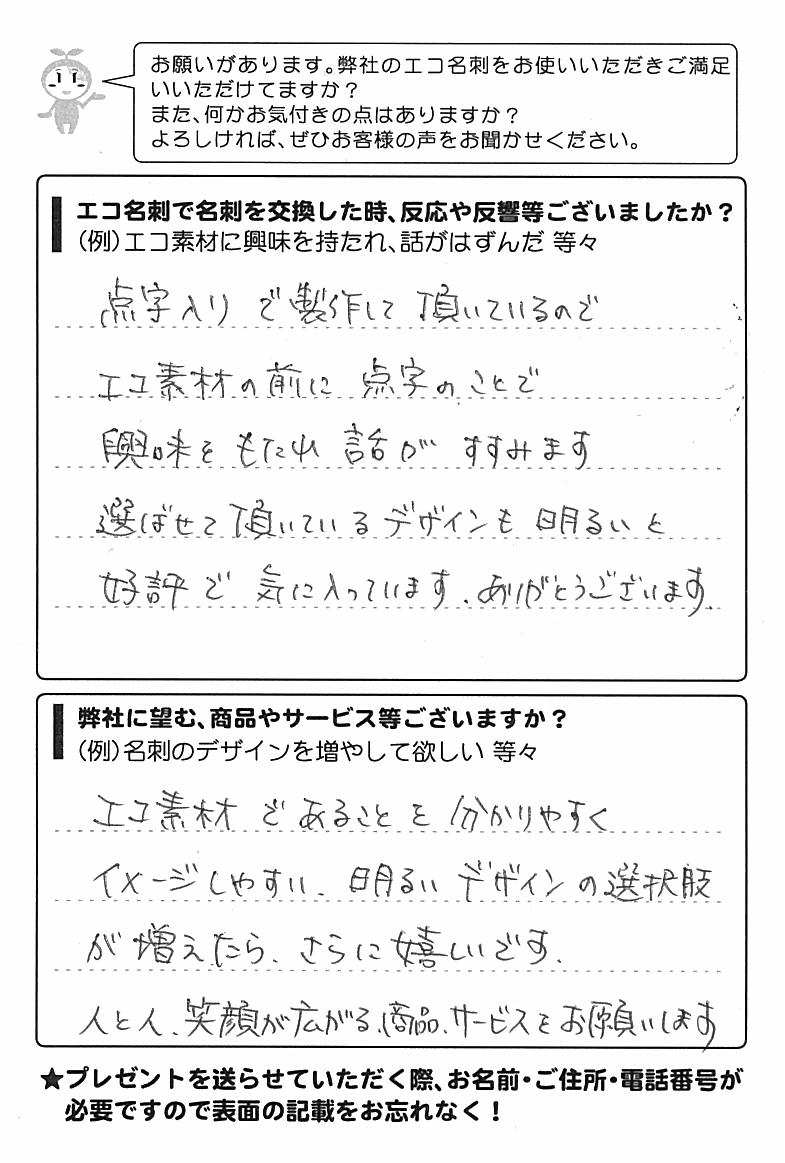 お願いがあります。弊社のエコ名刺をお使いいただきご満足
いいただけてますか？
また、何かお気付きの点はありますか？
よろしければ、ぜひお客様の声をお聞かせください。
エコ名刺で名刺を交換した時、反応や反響等ございましたか？
（例）エコ素材に興味を持たれ、話がはずんだ 等々
点字入りで製作して頂いているので
エコ素材の前に点字のことで
興味をもたれ話がすすみます
選ばせて頂いているデザインも明るいと
好評で気に入っています。ありがとうございます。
弊社に望む、商品やサービス等ございますか？
（例）名刺のデザインを増やして欲しい 等々
エコ素材であることを分かりやすく
イメージしやすい、明るいデザインの選択肢
が増えたら、さらに嬉しいです。
人と人、笑顔が広がる、商品、サービスをお願いします
★プレゼントを送らせていただく際、お名前・ご住所・電話番号が
必要ですので表面の記載をお忘れなく！